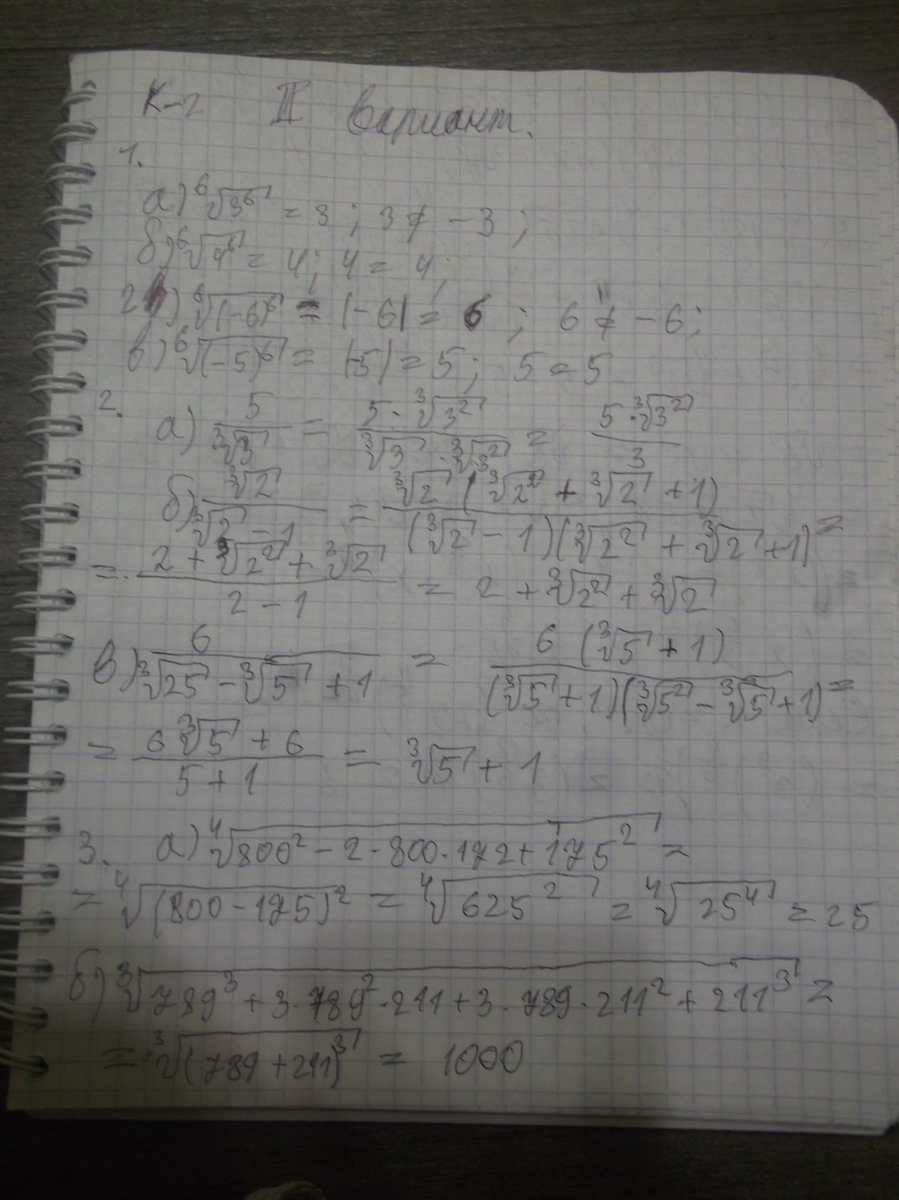 К-2 II вариант.
1.
а) ⁶√3⁶ = 3 ; 3 ≠ -3 ;
б) ⁶√4⁶ = 4; 4 = 4;
г) ⁶√(-6)⁶ = |-6| = 6 ; 6 ≠ -6;
в) ⁶√(-5)⁶ = |-5| = 5; 5 = 5
2. а) 5/∛3 = 5·∛3²/(∛3 · ∛3²) = 5·∛3²/3
б) ∛2/(∛2 - 1) = ∛2 (∛2² + ∛2 + 1)/((∛2 - 1)(∛2² + ∛2 + 1)) =
= (2 + ∛2² + ∛2)/(2 - 1) = 2 + ∛2² + ∛2
в) 6/(∛25 - ∛5 + 1) = 6 (∛5 + 1)/((∛5 + 1)(∛5² - ∛5 + 1)) =
= (6∛5 + 6)/(5 + 1) = ∛5 + 1
3. а) ∜(800² - 2·800·172 + 175²) =
= ∜(800 - 175)² = ∜625² = ∜25⁴ = 25
б) ∛(789³ + 3·789²·211 + 3·789·211² + 211³) =
= ∛(789 + 211)³ = 1000